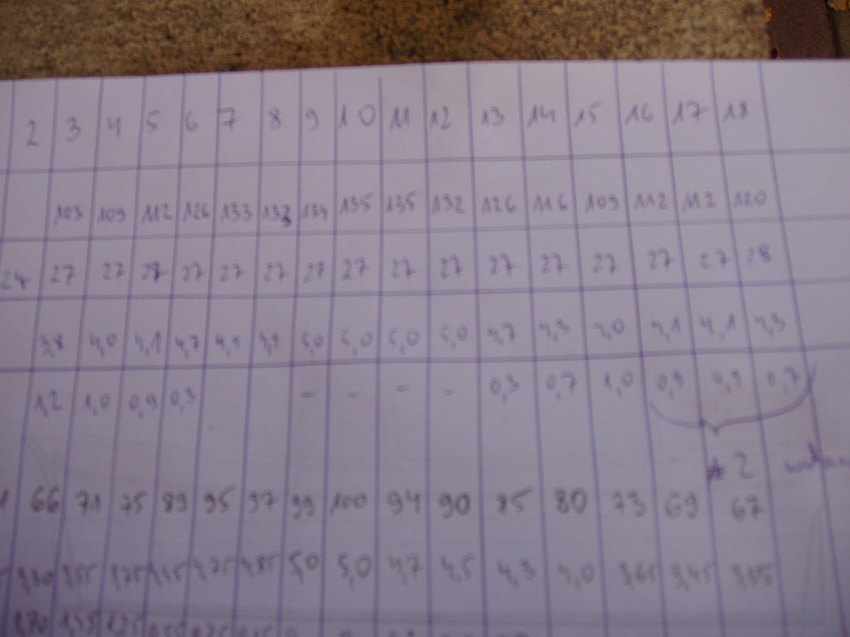 2 3 4 5 6 7 8 9 10 11 12 13 14 15 16 17 18
103 109 112 126 133 133 134 135 135 132 126 116 109 112 112 120
24 27 27 27 27 27 27 27 27 27 27 27 27 27 27 27 28
3,8 4,0 4,1 4,7 4,9 4,9 5,0 5,0 5,0 5,0 4,7 4,3 4,0 4,1 4,1 4,3
1,2 1,0 0,9 0,3 - - - - 0,3 0,7 1,0 0,9 0,9 0,7
2
66 71 75 89 95 97 99 100 94 90 85 80 73 69 67
3,30 3,55 4,75 4,85 5,0 5,0 4,7 4,5 4,3 4,0 3,65 3,45 3,35